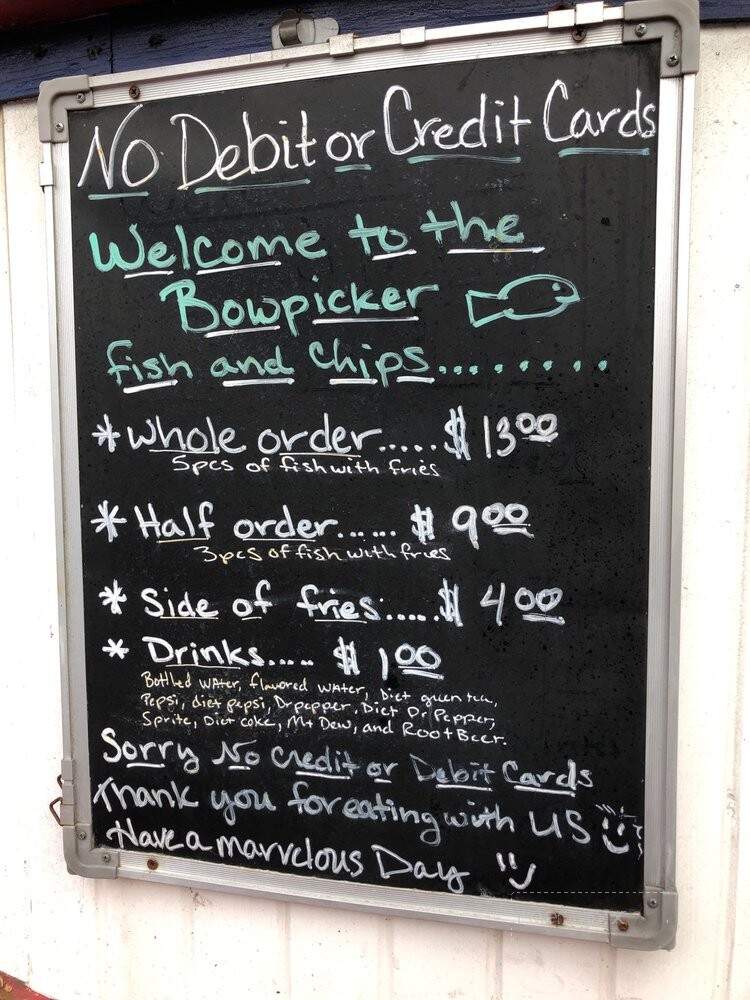 No Debit or Credit Cards
Welcome to the
Bowpicker
fish and chips.........
* Whole order..... $ 1300
5pcs of fish with fries
* Half order...... $ 900
3pcs of fish with fries
* Side of fries..... $ 400
* Drinks..... $ 100
Bottled water, flavored water, Diet green tea,
Pepsi, diet pepsi, Dr pepper, Diet Dr Pepper,
Sprite, Diet coke, Mt Dew, and Root Beer.
Sorry No Credit or Debit Cards
Thank you for eating with US
Have a marvelous Day